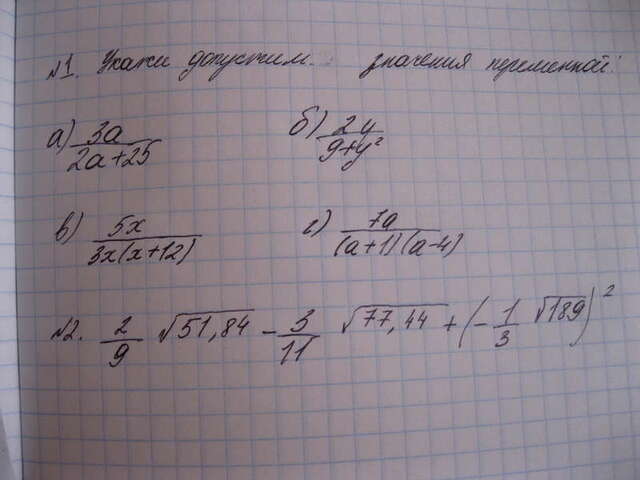 №1. Укажи допустим. значения переменной:
а) 3a/(2a+25) б) 2y/(9+y²)
в) 5x/(3x(x+12)) г) 7a/((a+1)(a-4))
№2. 2/9 √51,84 - 3/11 √77,44 + (-1/3 √189)²